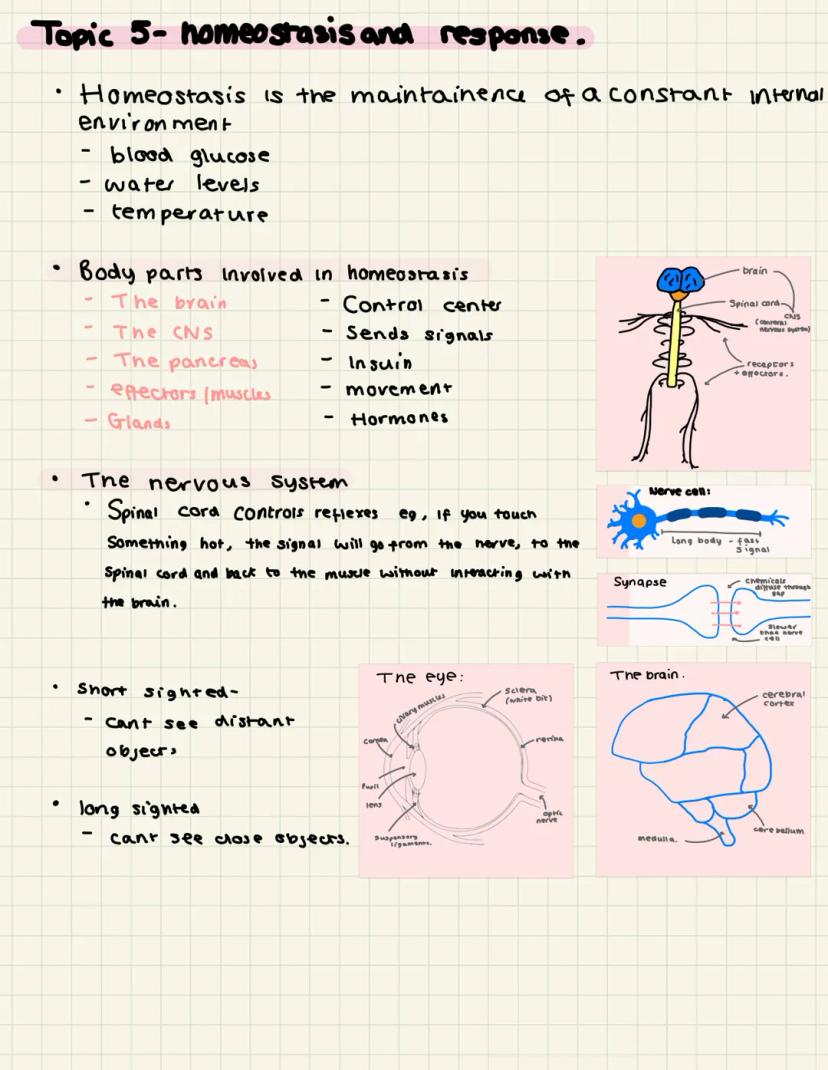 Topic 5- homeostasis and response.
• Homeostasis is the maintainence of a constant internal
environment
- blood glucose
- water levels
- temperature
• Body parts involved in homeostasis
- The brain - Control center
- The CNS - Sends signals
- The pancreas - Insuin
- effectors / muscles - movement
- Glands - Hormones
brain
Spinal cord
CNS
(central
nervous system)
receptors
+ effectors.
• The nervous system
• Spinal cord controls reflexes eg, if you touch
something hot, the signal will go from the nerve, to the
spinal cord and back to the muscle without interacting with
the brain.
Nerve cell:
Long body - fast
signal
Synapse
Chemicals
diffuse through
gap
slower
than nerve
cell
• Short sighted-
- cant see distant
objects
• long sighted
- cant see close objects.
The eye:
Sclera
(white bit)
cilary muscles
cornea
retina
Pupil
lens
optic
nerve
suspensory
ligaments.
The brain.
cerebral
cortex
cerebellum
medulla.